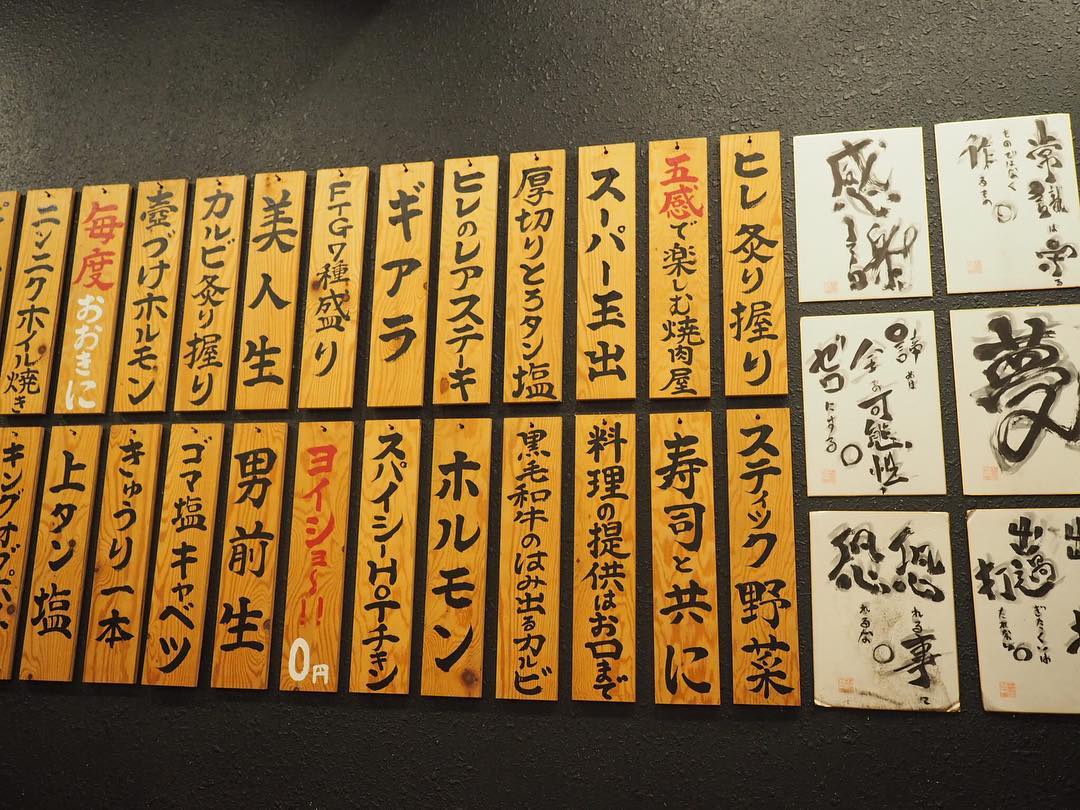 常識は守る
ものではなく
作るもの
感謝
夢
諦めは
全る可能性を
ゼロにする
出過ぎたくいは
打たれない
恐れる事を
恐れるな
ヒレ炙り握り
五感で楽しむ焼肉屋
スーパー玉出
厚切りとろタン塩
ヒレのレアステーキ
ギアラ
FTG7種盛り
美人生
カルビ炙り握り
壺づけホルモン
毎度おおきに
ニンニクホイル焼き
スティック野菜
寿司と共に
料理の提供はお口まで
黒毛和牛のはみ出るカルビ
ホルモン
スパイシーHOTチキン
ヨイショ〜!! 0円
男前生
ゴマ塩キャベツ
きゅうり一本
上タン塩